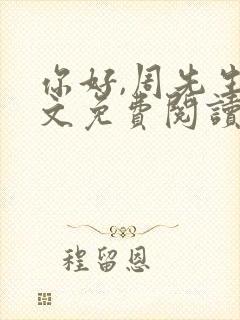 你好,周先生
文免费閱讀
程留恩